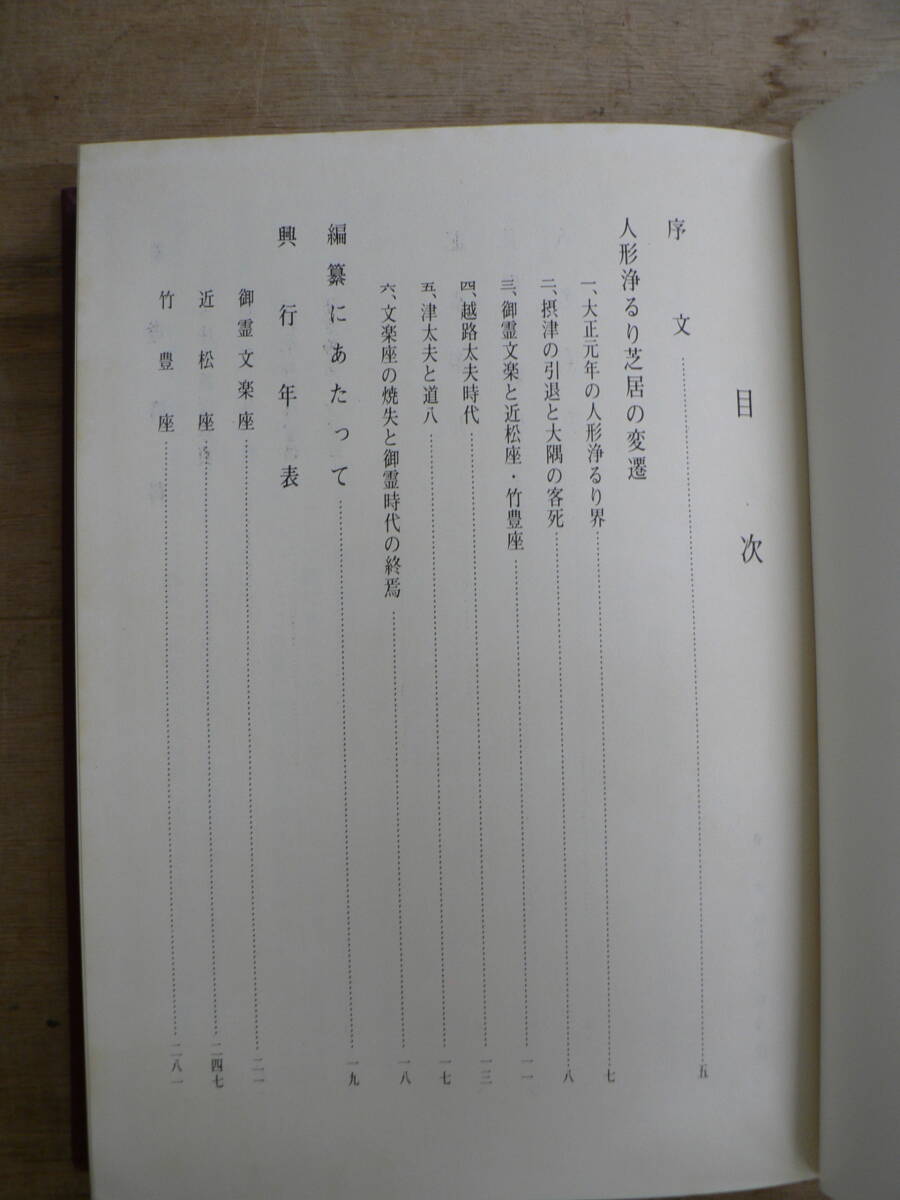 目次
序文……五
人形浄るり芝居の変遷
一、大正元年の人形浄るり界……七
二、摂津の引退と大隅の客死……八
三、御霊文楽と近松座・竹豊座……一一
四、越路太夫時代……一三
五、津太夫と道八……一七
六、文楽座の焼失と御霊時代の終焉……一八
編纂にあたって……一九
興行年表
御霊文楽座……二一
近松座……二四七
竹豊座……二八一